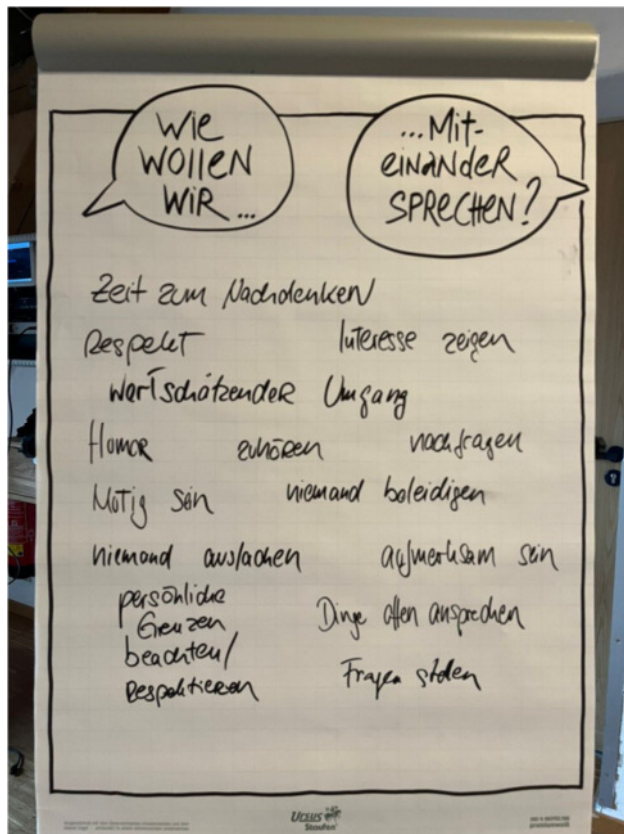 WIE
WOLLEN
WIR ...
... MIT-
EINANDER
SPRECHEN?
Zeit zum Nachdenken
Respekt
Interesse zeigen
wertschätzender Umgang
Humor zuhören nachfragen
Mutig sein niemand beleidigen
niemand auslachen aufmerksam sein
persönliche
Grenzen
beachten/
Respektieren
Dinge offen ansprechen
Fragen stellen
URSUS
Staufen